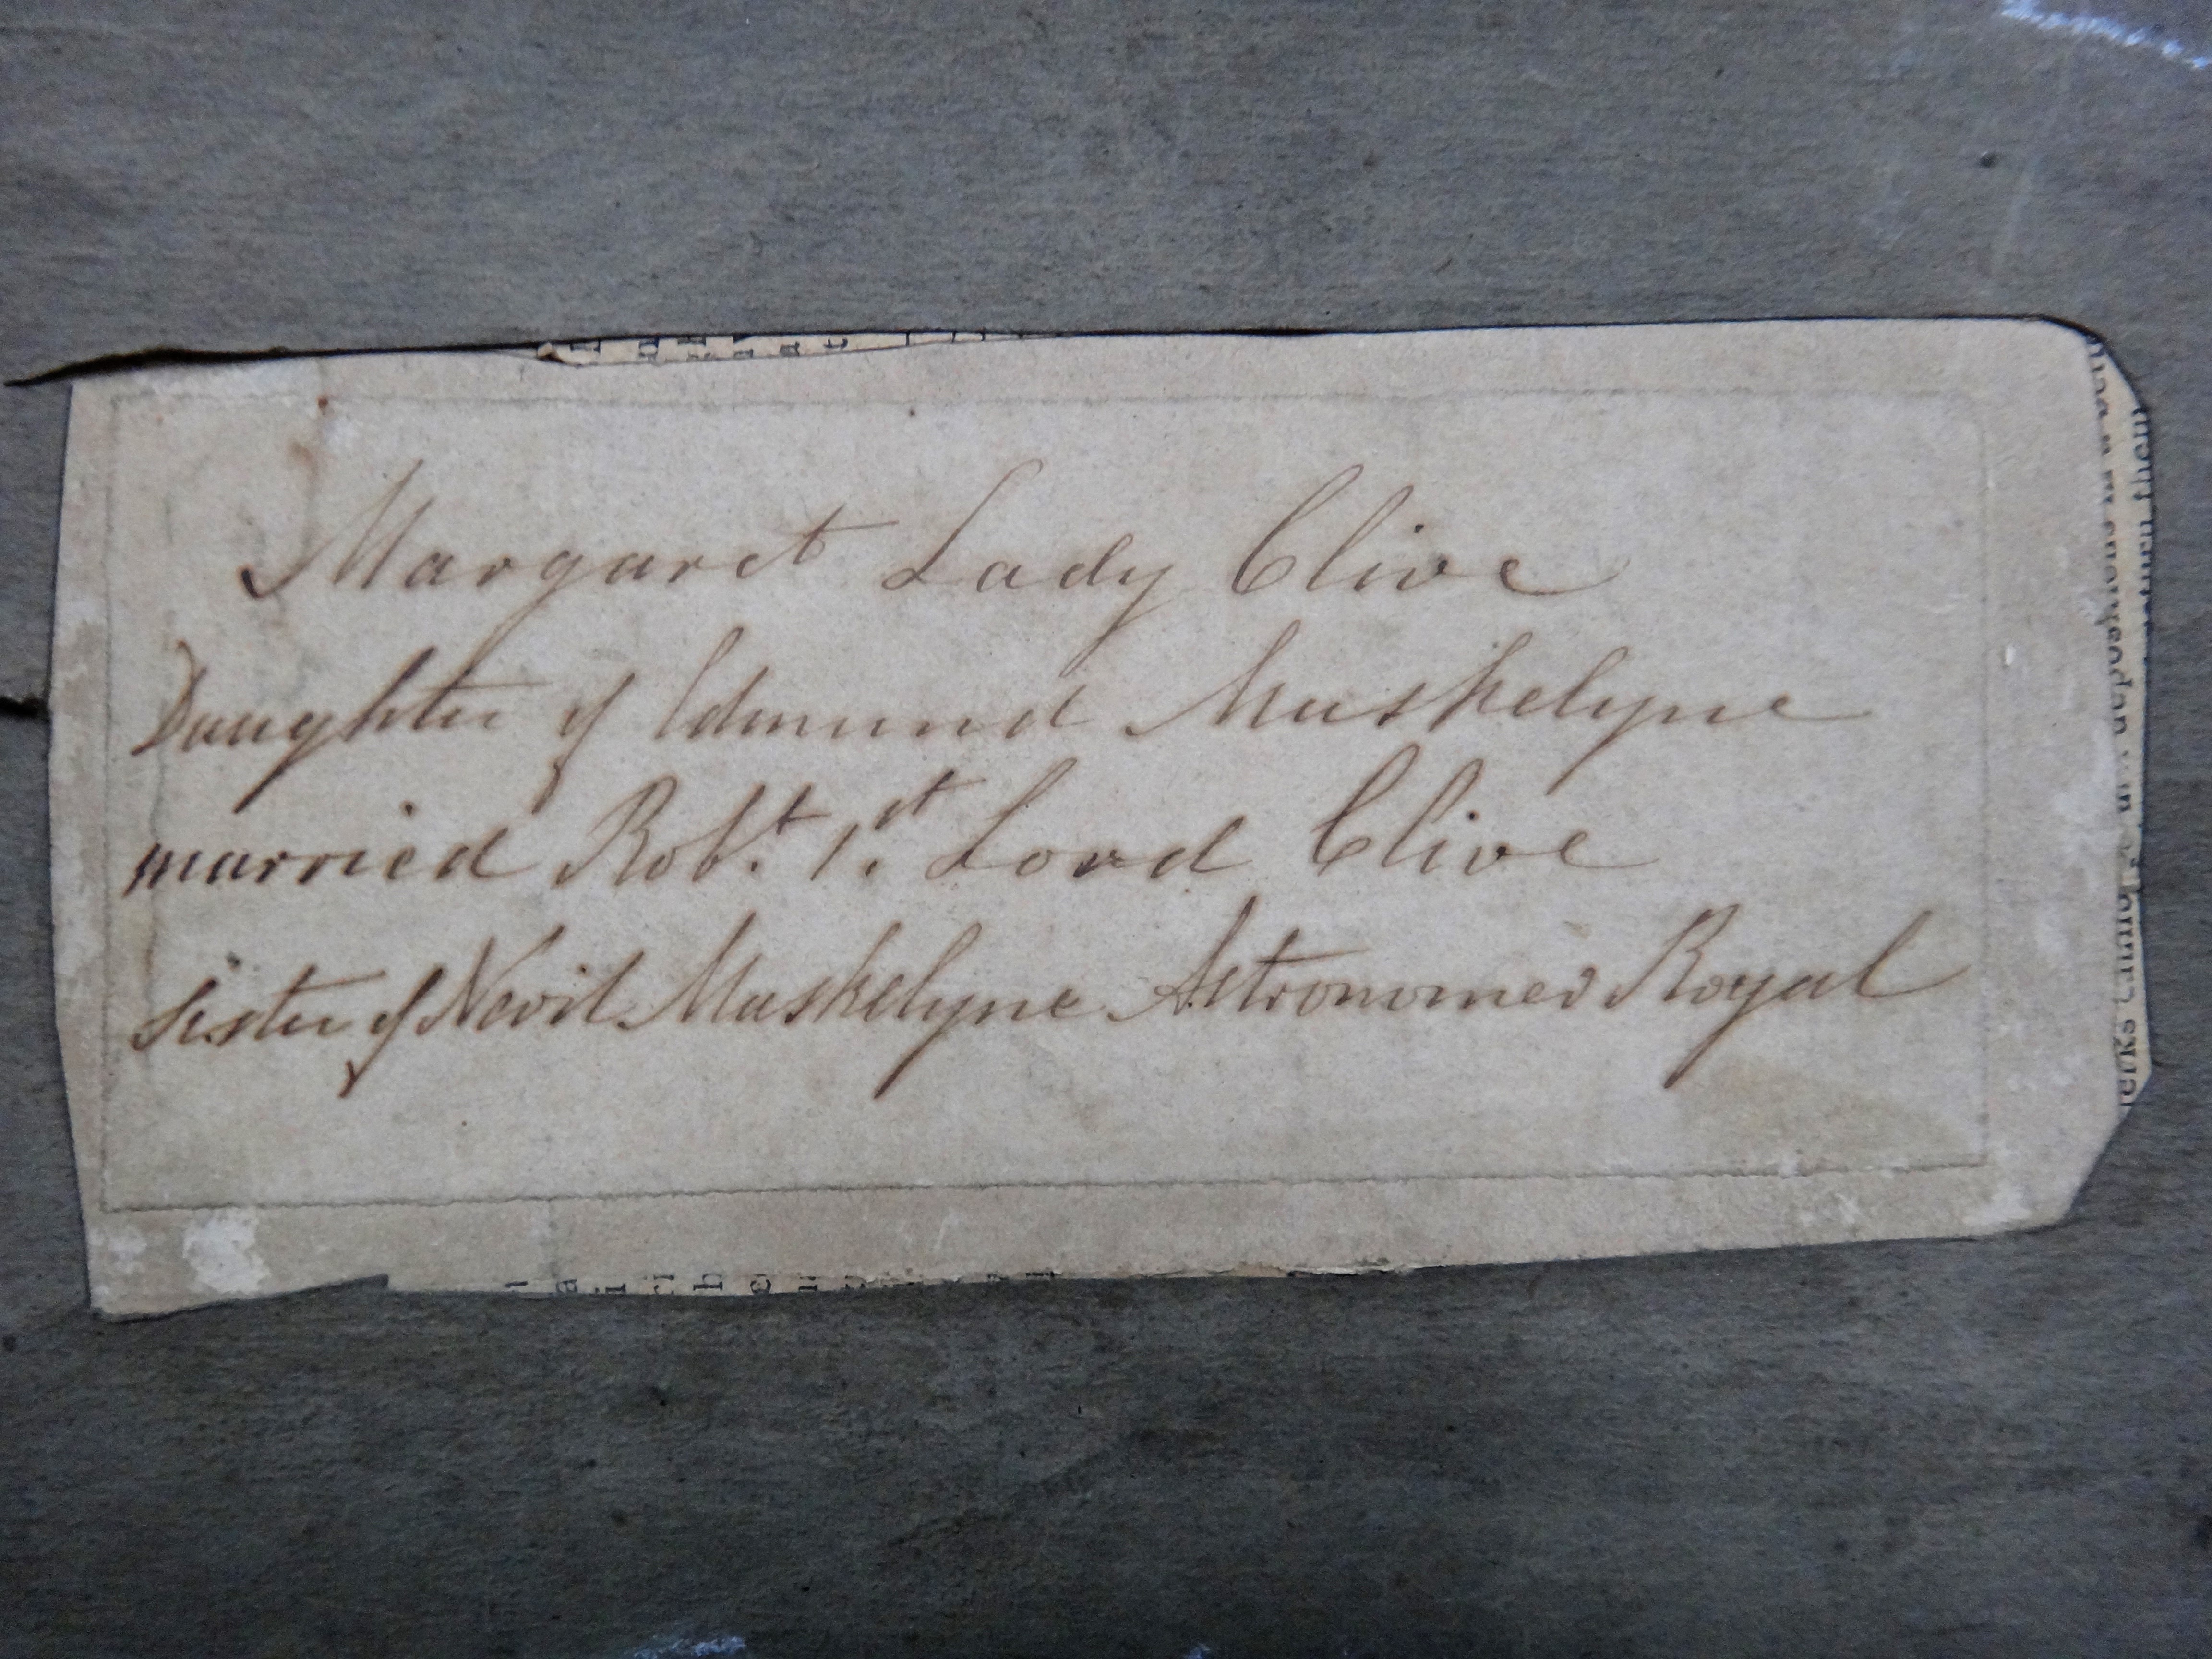 Margaret Lady Clive
Daughter of Edmund Maskelyne
married Robt. 1.st Lord Clive
Sister of Nevil Maskelyne Astronomer Royal
them